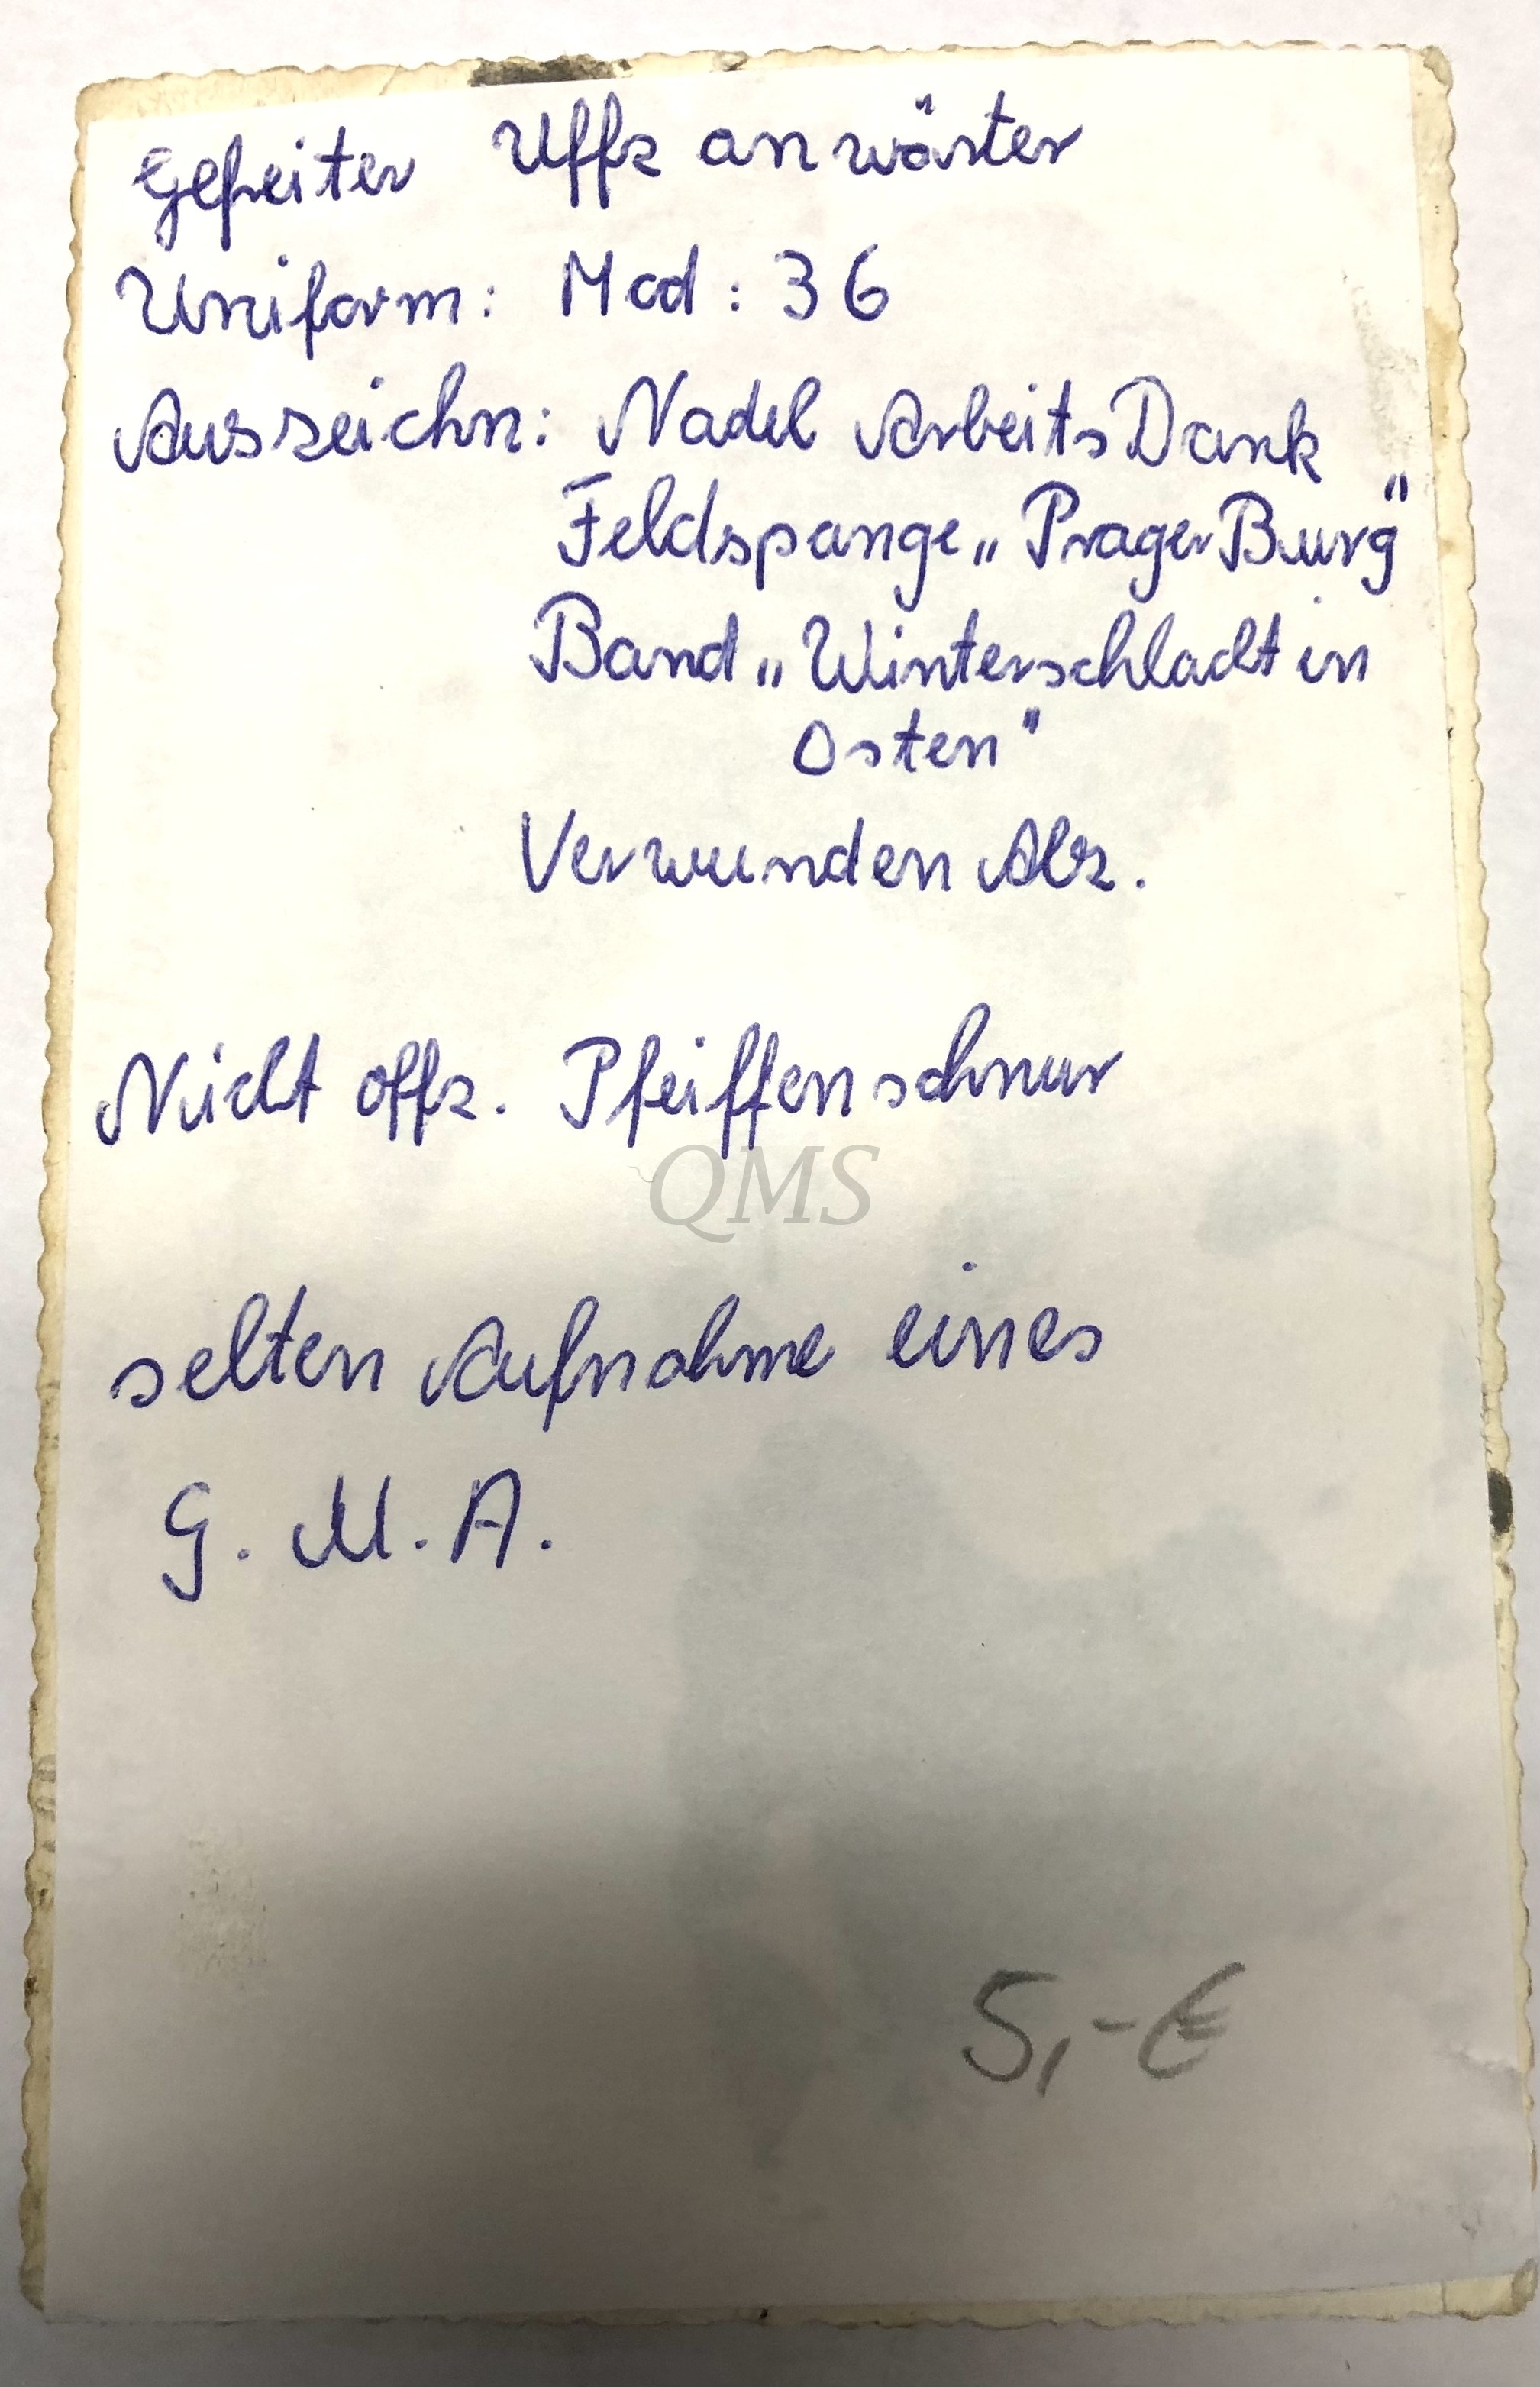 Gefreiter Uffz anwärter
Uniform: Mod: 36
Auszeichn: Nadel Arbeits Dank
Feldspange „Prager Burg"
Band „Winterschlacht in
Osten"
Verwunden Abz.
Nicht offz. Pfeiffenschnur
QMS
selten Aufnahme eines
G. U. A.
5,-€